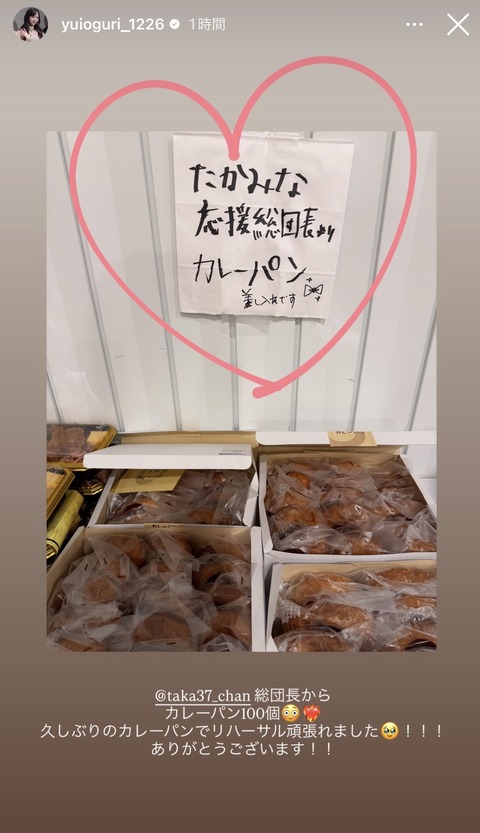 yuioguri_1226 1時間
たかみな
応援総団長より
カレーパン
差し入れです
@taka37_chan 総団長から
カレーパン100個😳❤️‍🔥
久しぶりのカレーパンでリハーサル頑張れました🥹！！！
ありがとうございます！！